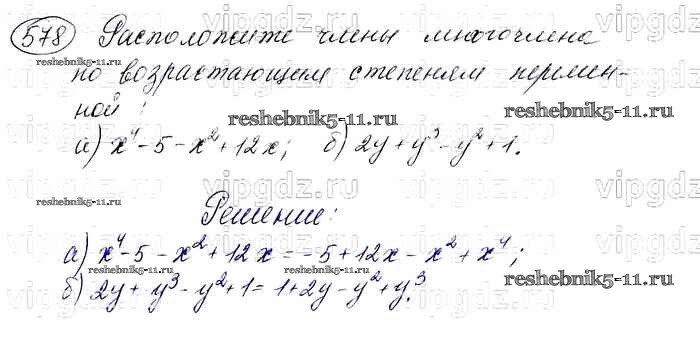 578 Расположите члены многочлена
по возрастающим степеням перемен-
ной:
а) x⁴ - 5 - x² + 12x; б) 2y + y³ - y² + 1.
Решение:
а) x⁴ - 5 - x² + 12x = -5 + 12x - x² + x⁴;
б) 2y + y³ - y² + 1 = 1 + 2y - y² + y³.
vipgdz.ru
reshebnik5-11.ru